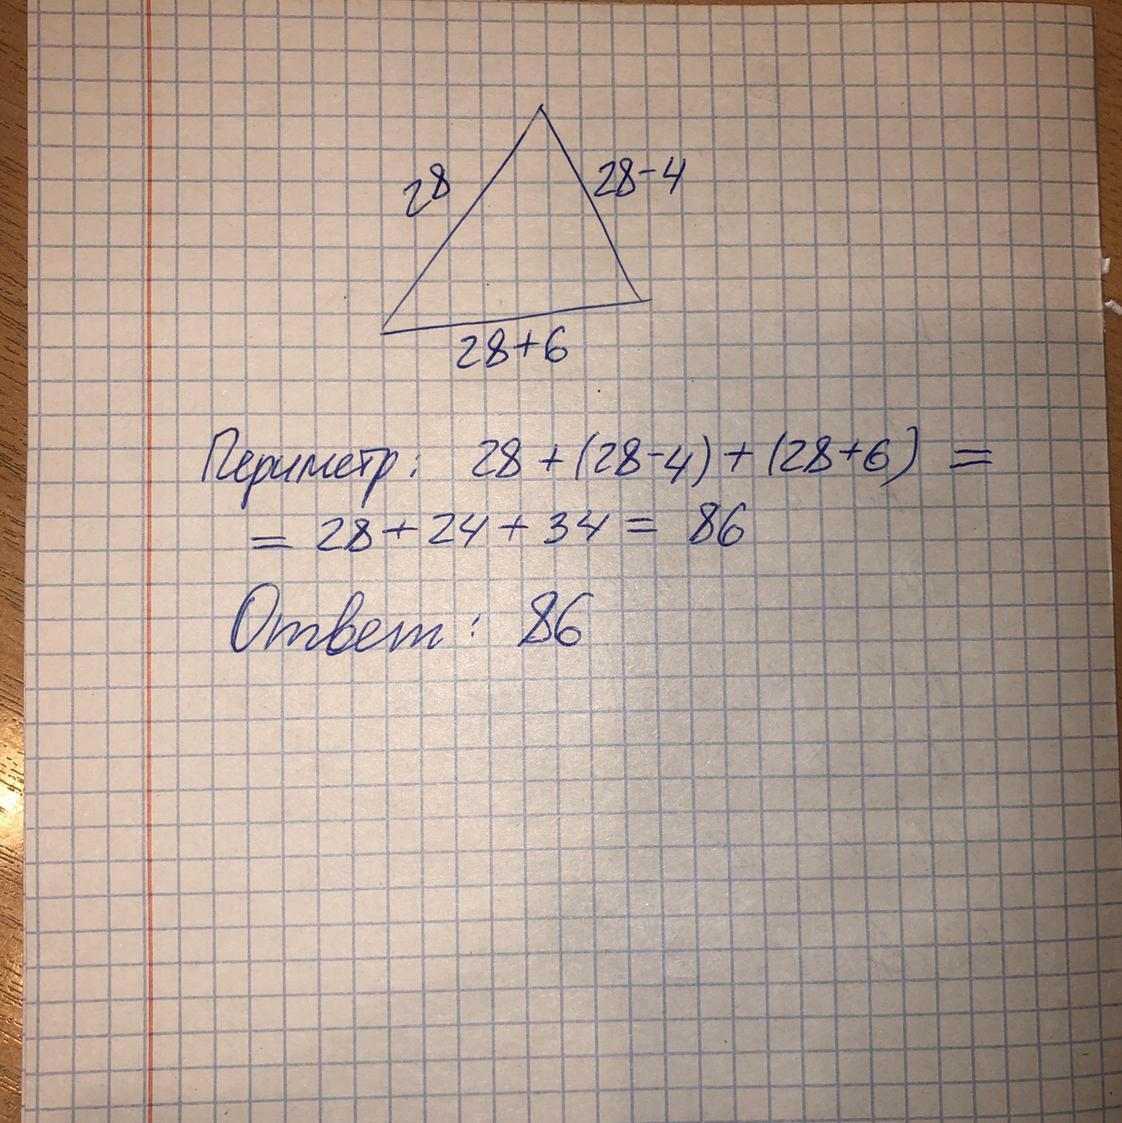 28
28-4
28+6
Периметр: 28 + (28-4) + (28+6) =
= 28 + 24 + 34 = 86
Ответ: 86